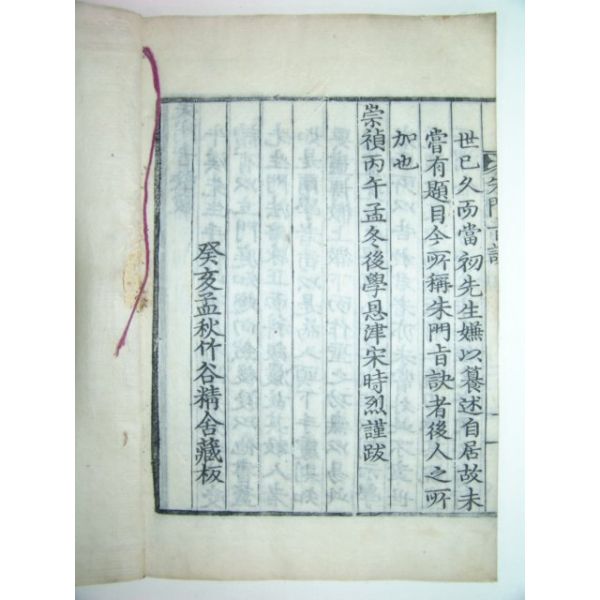 朱門旨訣
世已久而當初先生嫌以纂述自居故未
嘗有題目今所稱朱門旨訣者後人之所
加也
崇禎丙午孟冬後學恩津宋時烈謹跋
癸亥孟秋竹谷精舍藏板